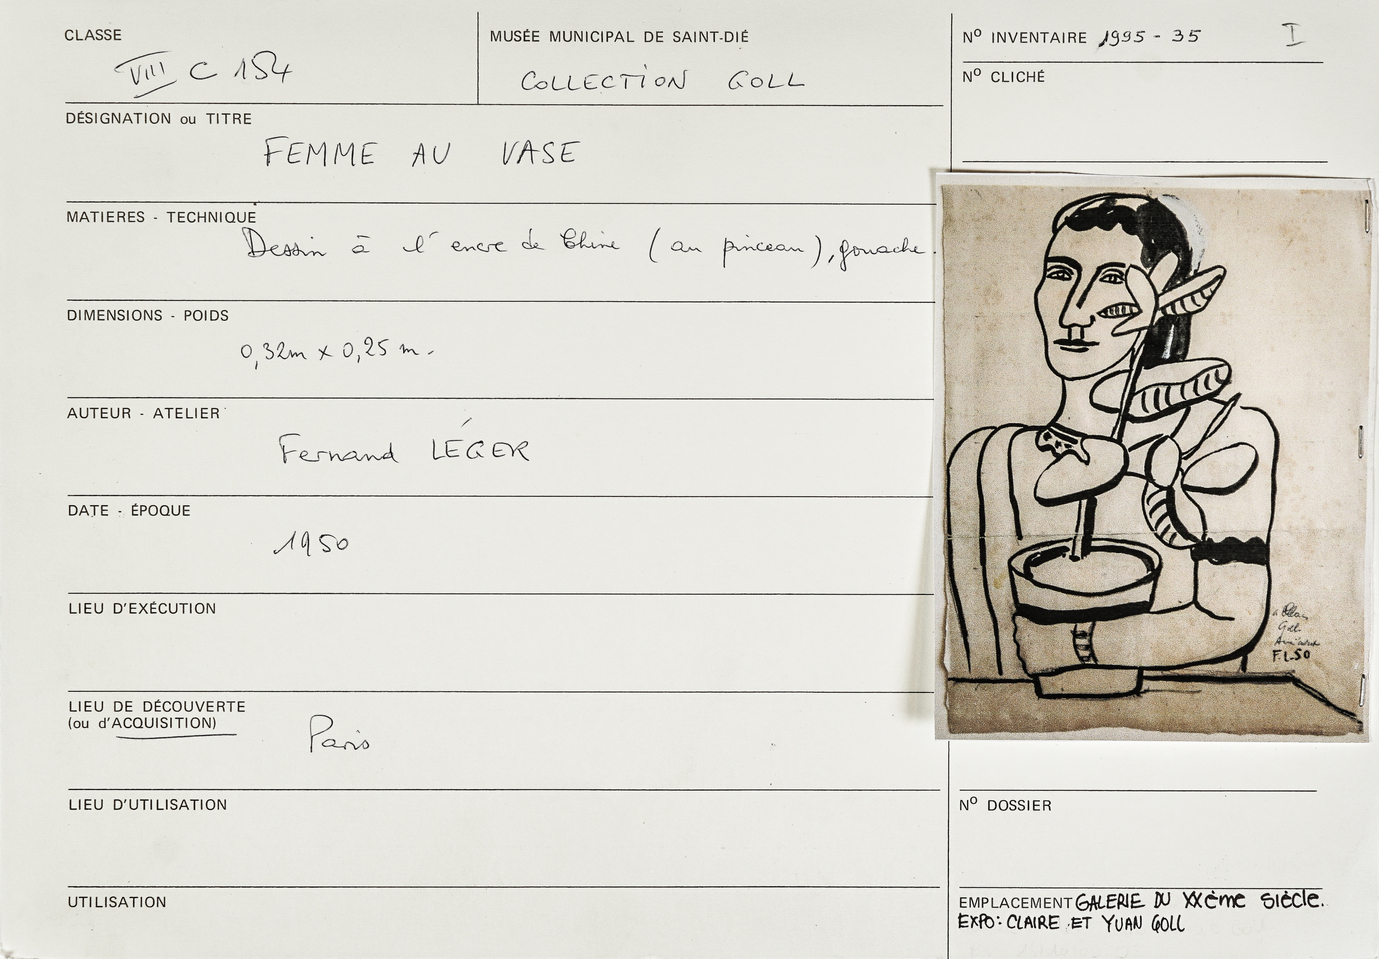 CLASSE
VIII C 154
MUSÉE MUNICIPAL DE SAINT-DIÉ
COLLECTION GOLL
Nº INVENTAIRE 1995 - 35 I
Nº CLICHÉ
DÉSIGNATION ou TITRE
FEMME AU VASE
MATIERES - TECHNIQUE
Dessin à l'encre de Chine (au pinceau), gouache.
DIMENSIONS - POIDS
0,32m x 0,25 m.
AUTEUR - ATELIER
Fernand LÉGER
DATE - ÉPOQUE
1950
LIEU D'EXÉCUTION
LIEU DE DÉCOUVERTE
(ou d'ACQUISITION)
Paris
LIEU D'UTILISATION
UTILISATION
Goll
F.L.50
Nº DOSSIER
EMPLACEMENT GALERIE DU XXème siècle.
EXPO: CLAIRE ET YUAN GOLL